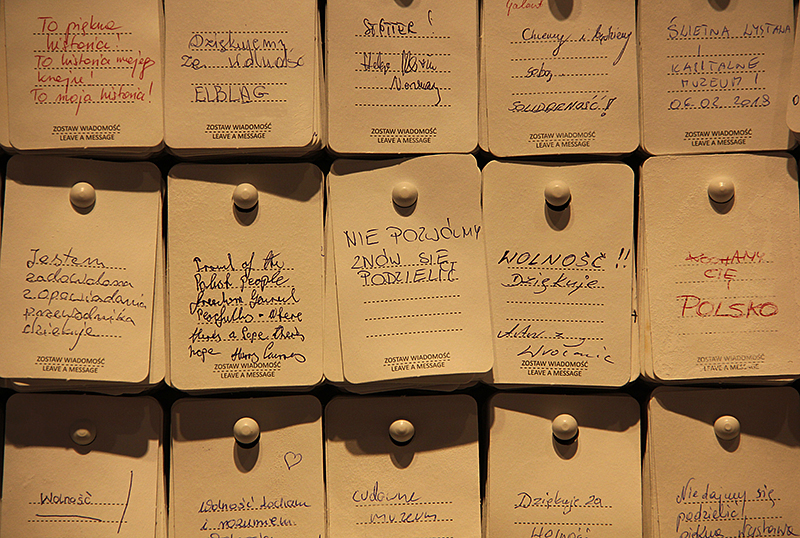 To piękna
historia!
To historia mojego
kraju!
To moja historia!
Dziękujemy
za wolność
ELBLĄG
ZOSTAW WIADOMOŚĆ
LEAVE A MESSAGE
Norway
ZOSTAW WIADOMOŚĆ
LEAVE A MESSAGE
Galant
Chcemy i będziemy
sobą
SOLIDARNOŚĆ!!
ZOSTAW WIADOMOŚĆ
LEAVE A MESSAGE
ŚWIETNA WYSTAWA
I
KAPITALNE
MUZEUM!
06.02.2018
ZOSTAW WIADOMOŚĆ
LEAVE A MESSAGE
Jestem
zadowolona
z opowiadania
przewodnika
dziękuje
ZOSTAW WIADOMOŚĆ
LEAVE A MESSAGE
Proud of the
Polish People
freedom
where
there's a Pope there's
hope
ZOSTAW WIADOMOŚĆ
LEAVE A MESSAGE
NIE POZWÓLMY
ZNÓW SIĘ
PODZIELIĆ
ZOSTAW WIADOMOŚĆ
LEAVE A MESSAGE
WOLNOŚĆ!!
Dziękuje
ZOSTAW WIADOMOŚĆ
LEAVE A MESSAGE
KOCHAMY
CIĘ
POLSKO
ZOSTAW WIADOMOŚĆ
LEAVE A MESSAGE
Wolność
Wolność kocham
i rozumiem
cudowne
muzeum
Dziękuje za
Wolność
Nie dajmy się
podzielić!
piękna wystawa